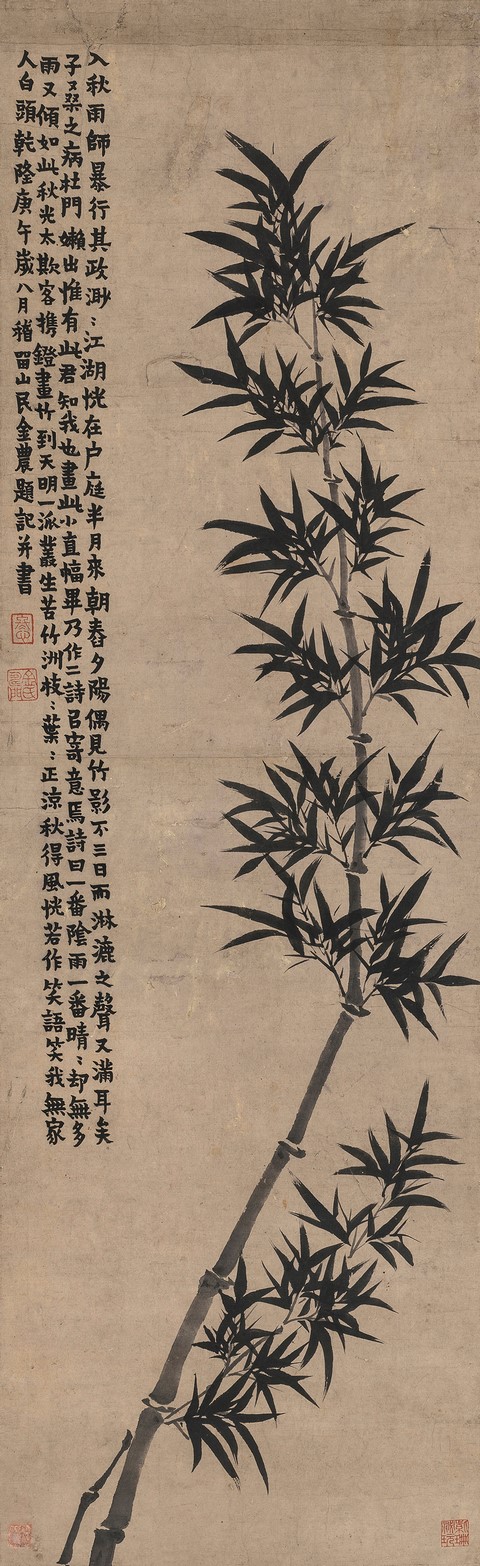 入秋雨師暴行其政渺〻江湖恍在户庭半月來朝春夕陽偶見竹影不三日而淋漉之聲又滿耳矣
子又桑之病杜門嬾出惟有此君知我也畫此小直幅畢乃作二詩㠯寄意焉詩曰一番陰雨一番晴〻却無多
雨又傾如此秋光太欺客携鐙畫竹到天明一派叢生苦竹洲枝〻葉〻正涼秋得風恍若作笑語笑我無家
人白頭乾隆庚午歲八月稽留山民金農題記并書
金氏